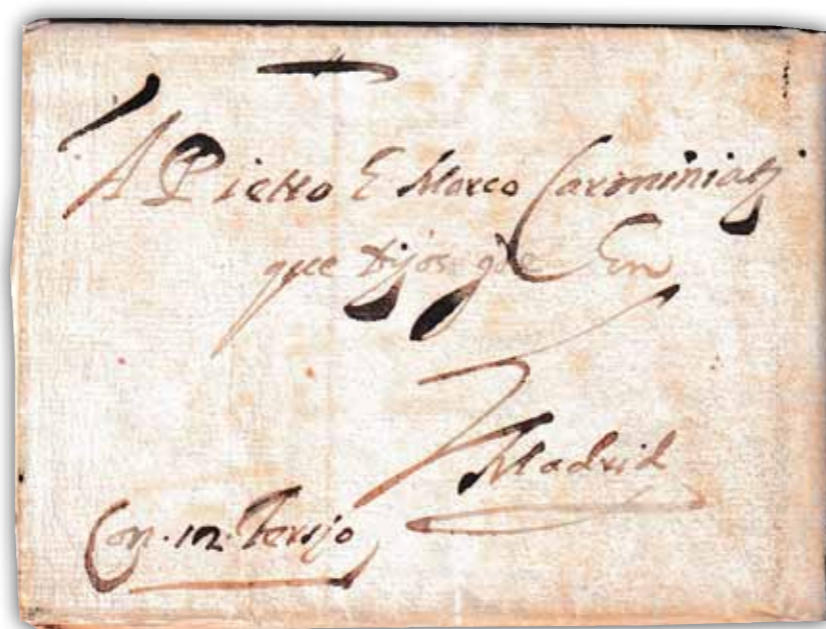 A Pietro E Marco Carminiatj
que Dios gde En
Madrid
Con .12. Tersjo